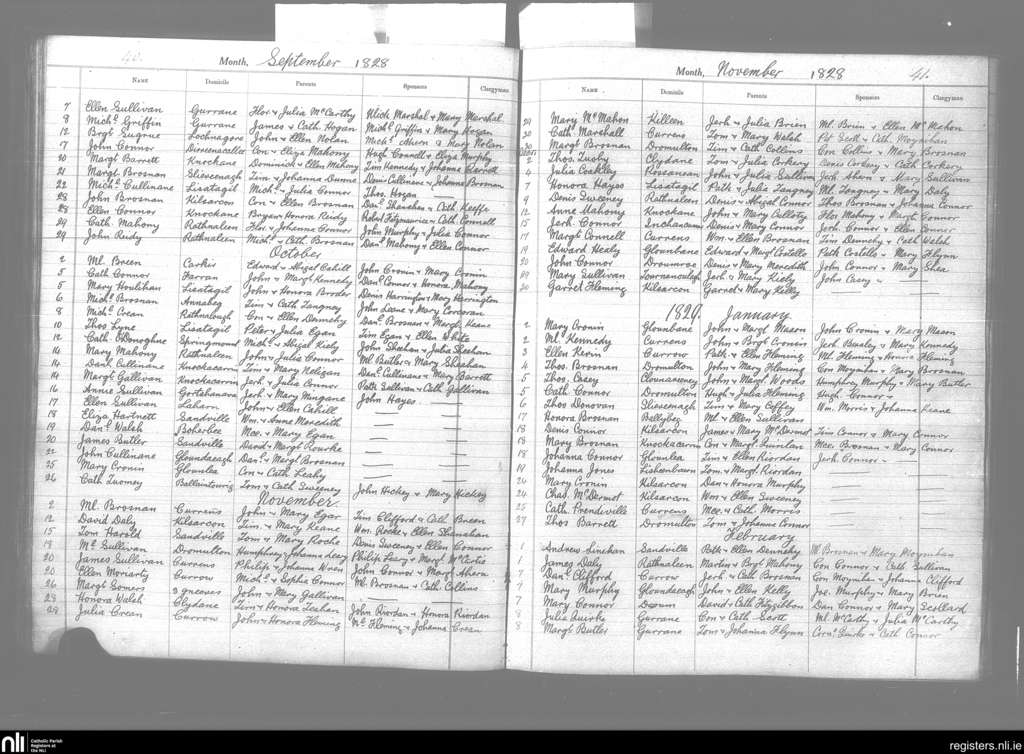 40.
Month, September 1828
NAME Domicile Parents Sponsors Clergyman
7 Ellen Sullivan Gurrane Flor & Julia McCarthy Ulick Marshal & Mary Marshal
8 Michl. Griffin Gurrane James & Cath. Hogan Michl. Griffin & Mary Hogan
12 Brgt. Sugrue John & Ellen Nolan Michl. Ahern & Mary Nolan
17 John Connor Con & Eliza Mahony Hugh Connell & Eliza Murphy
20 Margt. Barrett Knockane Dominick & Ellen Mahony Tim Kennedy & Johanna Barrett
21 Margt. Brosnan Slievenagh Tim & Johanna Dunne Denis Cullinane & Johanna Brosnan
22 Michl. Cullinane Lisatagil Michl. & Julia Connor Thos. Hogan
28 John Brosnan Kilsarcon Con & Ellen Brosnan Danl. Shanahan & Cath. Keeffe
28 Ellen Connor Knockane Bryan & Honora Reidy Robert Fitzmaurice & Cath. Connell
29 Cath. Mahony Rathnaleen Flor & Johanna Connor John Murphy & Julia Connor
29 John Reidy Rathnaleen Michl. & Cath. Brosnan Danl. Mahony & Ellen Connor
October
2 Ml. Breen Carker Edward & Abigal Cahill John Cronin & Mary Cronin
5 Cath. Connor Farran John & Margt. Kennedy Danl. Connor & Honora Mahony
5 Mary Houlihan Lisatagil John & Honora Broder Denis Harrington & Mary Herrington
6 Michl. Brosnan Annabeg Tim & Cath. Tangney John Deane & Mary Corcoran
8 Michl. Crean Con & Ellen Dennehy Danl. Brosnan & Margt. Keane
10 Thos. Lyne Lisatagil Peter & Julia Egan Tim Egan & Ellen White
12 Cath. O'Donoghue Springmount Michl. & Abigal Kiely John Sheehan & Julia Sheehan
14 Mary Mahony Rathnaleen John & Julia Connor Ml. Butler & Mary Sheehan
14 Danl. Cullinane Knockacarrin Tim & Mary Neligan Danl. Cullinane & Mary Barrett
14 Margt. Gallivan Knockacarrin Jerh. & Julia Connor Patk. Sullivan & Cath. Gallivan
16 Annie Sullivan Gortshanavoe Jerh. & Mary Mungane John Hayes —
17 Ellen Sullivan Laharn John & Ellen Cahill — —
18 Eliza Hartnett Sandville Wm. & Anne Meredith — —
19 Danl. Walsh Boherbee Mce. & Mary Egan — —
20 James Butler Sandville David & Margt. Rourke — —
22 John Cullinane Gloundaeagh Danl. & Margt. Brosnan — —
25 Mary Cronin Glounlea Con & Cath. Leahy — —
26 Cath. Twomey Tom & Cath. Sweeney John Hickey & Mary Hickey
November
2 Ml. Brosnan Currens John & Mary Egar Tim Clifford & Cath. Breen
12 David Daly Kilsarcon Tim & Mary Keane Wm. Roche & Ellen Shanahan
15 Tom Harold Sandville Tom & Mary Roche Denis Sweeney & Ellen Connor
19 Ml. Sullivan Dromulton Humphrey & Johanna Leary Philip Leary & Margt. McCarthy
20 James Sullivan Currens Philip & Johanna Wren John Connor & Mary Ahern
20 Ellen Moriarty Currow Michl. & Sophia Connor Ml. Brosnan & Cath. Collins
26 Margt. Somers John & Mary Gallivan — —
28 Honora Walsh Clydane Tim & Honora Leehan John Riordan & Honora Riordan
28 Julia Crean Currow John & Honora Fleming Ml. Fleming & Johanna Crean
41.
Month, November 1828
NAME Domicile Parents Sponsors Clergyman
29 Mary McMahon Killeen Jerh. & Julia Brien Ml. Brien & Ellen McMahon
30 Cath. Marshall Currens Tom & Mary Walsh Pat Scott & Cath. Moynihan
30 Margt. Brosnan Dromulton Tim & Cath. Collins Con Collins & Mary Brosnan
2 Thos. Lucey Clydane Tom & Julia Corkery Denis Corkery & Cath. Corkery
4 Julia Coakley Rossanean John & Julia Sullivan Jerh. Ahern & Mary Sullivan
7 Honora Hayes Lisatagil Patk. & Julia Tangney Ml. Tangney & Mary Daly
9 Denis Sweeney Rathnaleen Denis & Abigal Connor Thos. Brosnan & Johanna Connor
12 Anne Mahony Knockane John & Mary Culloty Flor Mahony & Margt. Connor
15 Jerh. Connor Inchancummer Denis & Mary Connor Jerh. Connor & Ellen Connor
17 Margt. Connell Currens Wm. & Ellen Brosnan Tim Dennehy & Cath. Walsh
19 Edward Healy Glounbane Edward & Margt. Costello Patk. Costello & Mary Flynn
20 John Connor Dromroe Denis & Mary Meredith John Connor & Mary Shea
29 Mary Sullivan Tournanough Jerh. & Mary Kiely John Casey & —
30 Garret Fleming Kilsarcon Garret & Mary Kelly — —
1829. January
2 Mary Cronin Glounbane John & Margt. Mason John Cronin & Mary Mason
2 Ml. Kennedy Currens John & Brgt. Cronin Jerh. Buckley & Mary Kennedy
3 Ellen Kevin Currow Patk. & Ellen Fleming Ml. Fleming & Honora Fleming
4 Thos. Brosnan Dromulton John & Mary Fleming Con Moynihan & Mary Brosnan
5 Thos. Casey Clounaveeney John & Margt. Woods Humphrey Murphy & Mary Butler
5 Cath. Connor Dromulton Hugh & Julia Fleming Hugh Connor &
6 Thos. Donovan Slievenagh Tim & Mary Coffey Wm. Morris & Johanna Keane
17 Honora Brosnan Bellybeg Ml. & Ellen Sullivan — —
18 Denis Connor Kilsarcon James & Mary McDermot Tim Connor & Mary Connor
20 Mary Brosnan Knockacarrin Con & Margt. Quinlan Mce. Brosnan & Mary Connor
18 Johanna Connor Glounlea Tim & Ellen Riordan Jerh. Connor —
19 Johanna Jones Lisheenbawn Tom & Margt. Riordan — —
24 Mary Cronin Kilsarcon Dan & Honora Murphy — —
24 Chas. McDermot Kilsarcon Wm. & Ellen Sweeney — —
25 Cath. Frendeville Currens Mce. & Cath. Morris — —
27 Thos. Barrett Dromulton Tom & Johanna Connor — —
February
1 Andrew Linehan Sandville Patk. & Ellen Dennehy Ml. Brosnan & Mary Moynihan
1 James Daly Rathnaleen Martin & Brgt. Mahony Con Connor & Cath. Sullivan
7 Danl. Clifford Currow Jerh. & Cath. Brosnan Con Moynihan & Johanna Clifford
7 Mary Murphy Gloundaeagh John & Ellen Kelly Joe. Murphy & Mary Brien
7 Mary Connor David & Cath. Fitzgibbon Dan Connor & Mary Scollard
8 Julia Quirke Gurrane Con & Cath. Scott Ml. McCarthy & Julia McCarthy
8 Margt. Butler Gurrane Tom & Johanna Flynn Corns. Quirke & Cath. Connor
nli Catholic Parish Registers at the NLI
registers.nli.ie